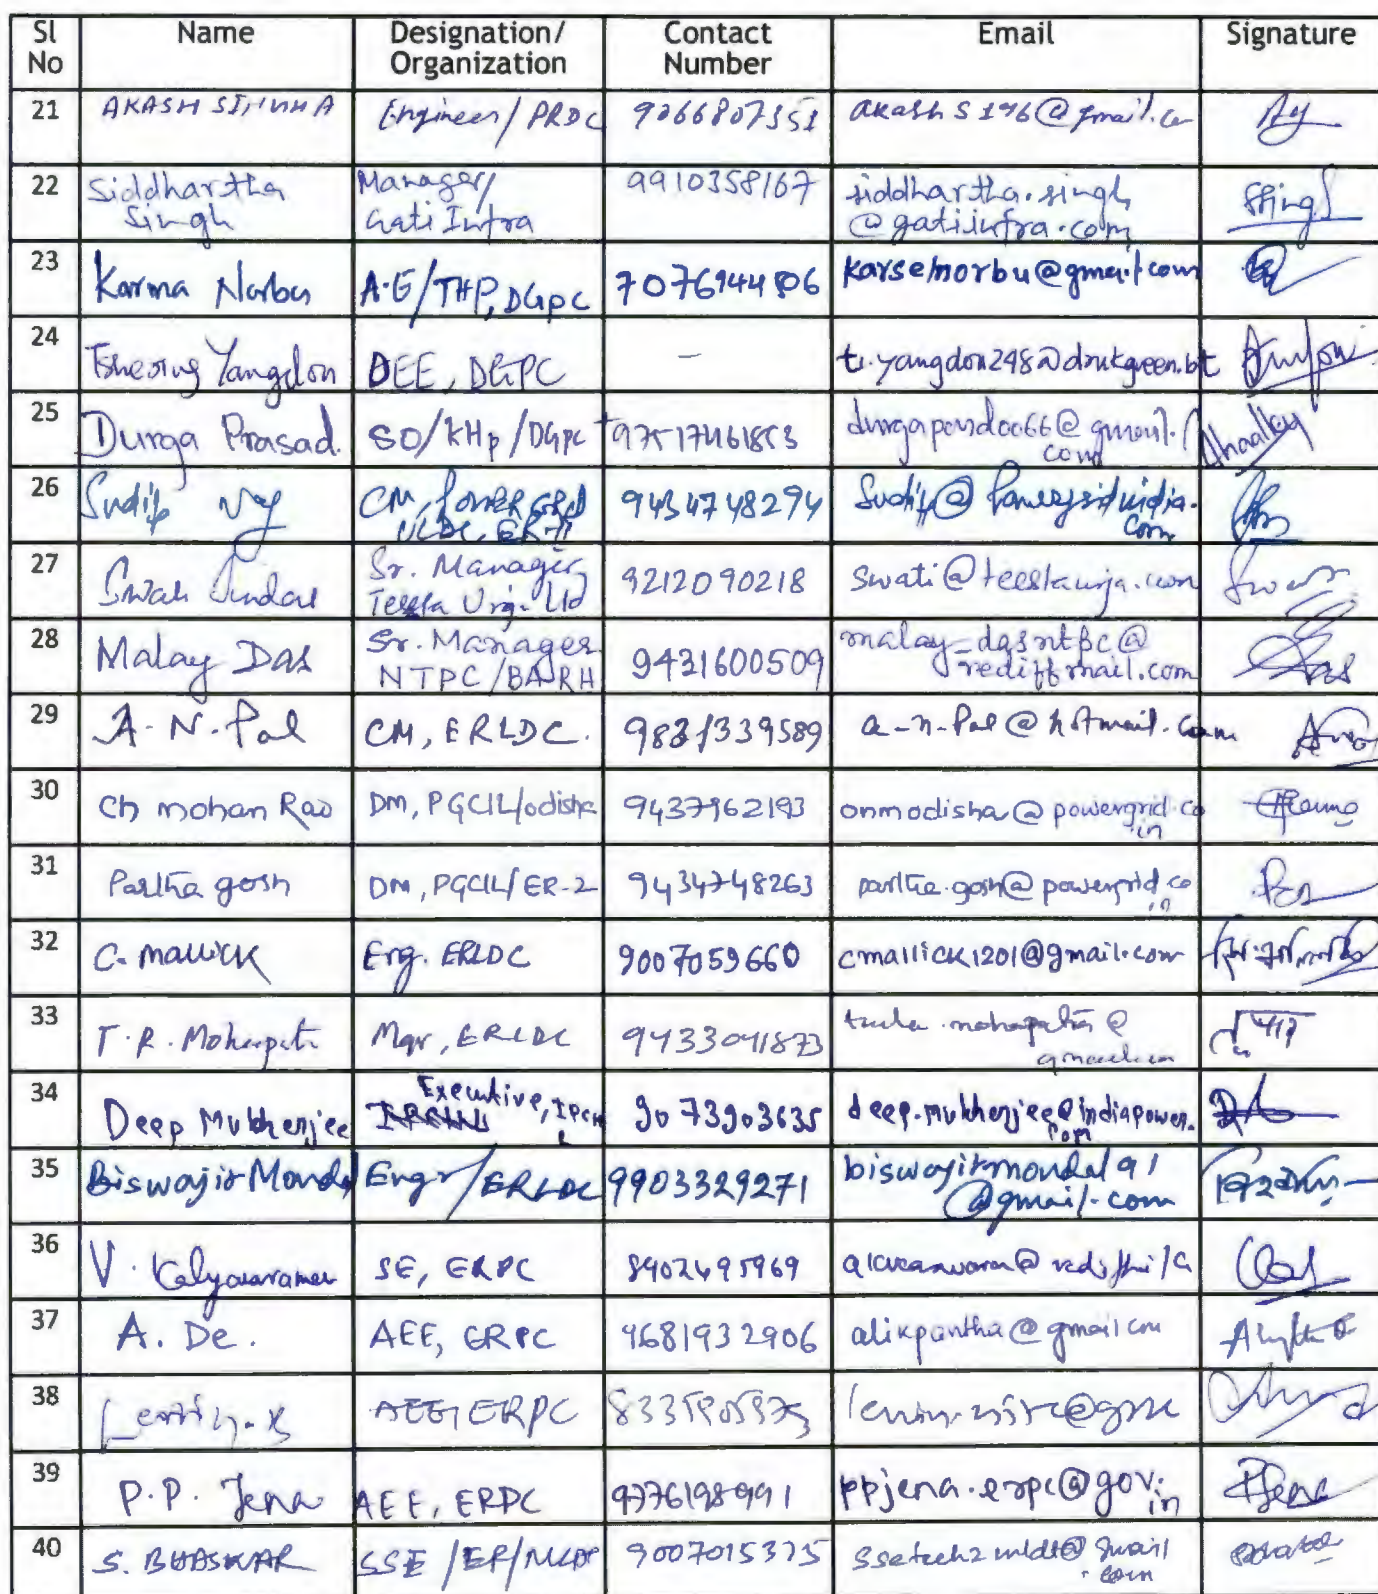 Sl No Name Designation/ Organization Contact Number Email Signature
21 AKASH SINHA Engineer/ PRDC 9066807351 akash s 196@gmail.co
22 Siddhartha Singh Manager/ Gati Infra 9910358167 siddhartha.singh @gatiinfra.com
23 Karma Norbu A.E/THP, DGPC 7076944806 karsemorbu@gmail.com
24 Tshering Yangdon DEE, DGPC - t.yangdon248@drukgreen.bt
25 Durga Prasad. SO/KHp/DGPC +97517461853 @gmail.com
26 Sudip CM, POWERGRID ULDC, ER-II 9434748294 Sudip@powergridindia.com
27 Swati Sr. Manager, Teesta Urja Ltd 9212090218 swati@teestaurja.com
28 Malay Das Sr. Manager NTPC/BARH 9431600509 malay_dasntpc@ rediffmail.com
29 A. N. Pal CM, ERLDC. 9831339589 a-n-pal@hotmail.com
30 Ch mohan Rao DM, PGCIL/odisha 9437962193 onmodisha@powergrid.co.in
31 Partha gosh DM, PGCIL/ER-2 9434748263 partha.gosh@powergrid.co.in
32 C. mallick Erg. ERLDC 9007059660 cmallick1201@gmail.com
33 T. R. Mohapatra Mgr, ERLDC 9433041873
34 Deep Mukherjee Executive, 9073903635 deep.mukherjee@indiapower.com
35 Biswajit Mondal Engr/ERLDC 9903329271 biswajitmondal91 @gmail.com
36 V. Kalyanaraman SE, ERPC 8902495969
37 A. De. AEE, ERPC 9681932906 alikpantha@gmail.com
38 AEE, ERPC
39 P.P. Jena AEE, ERPC 9776198991 ppjena.erpc@gov.in
40 S. BHASKAR SSE /ER/ 9007015375